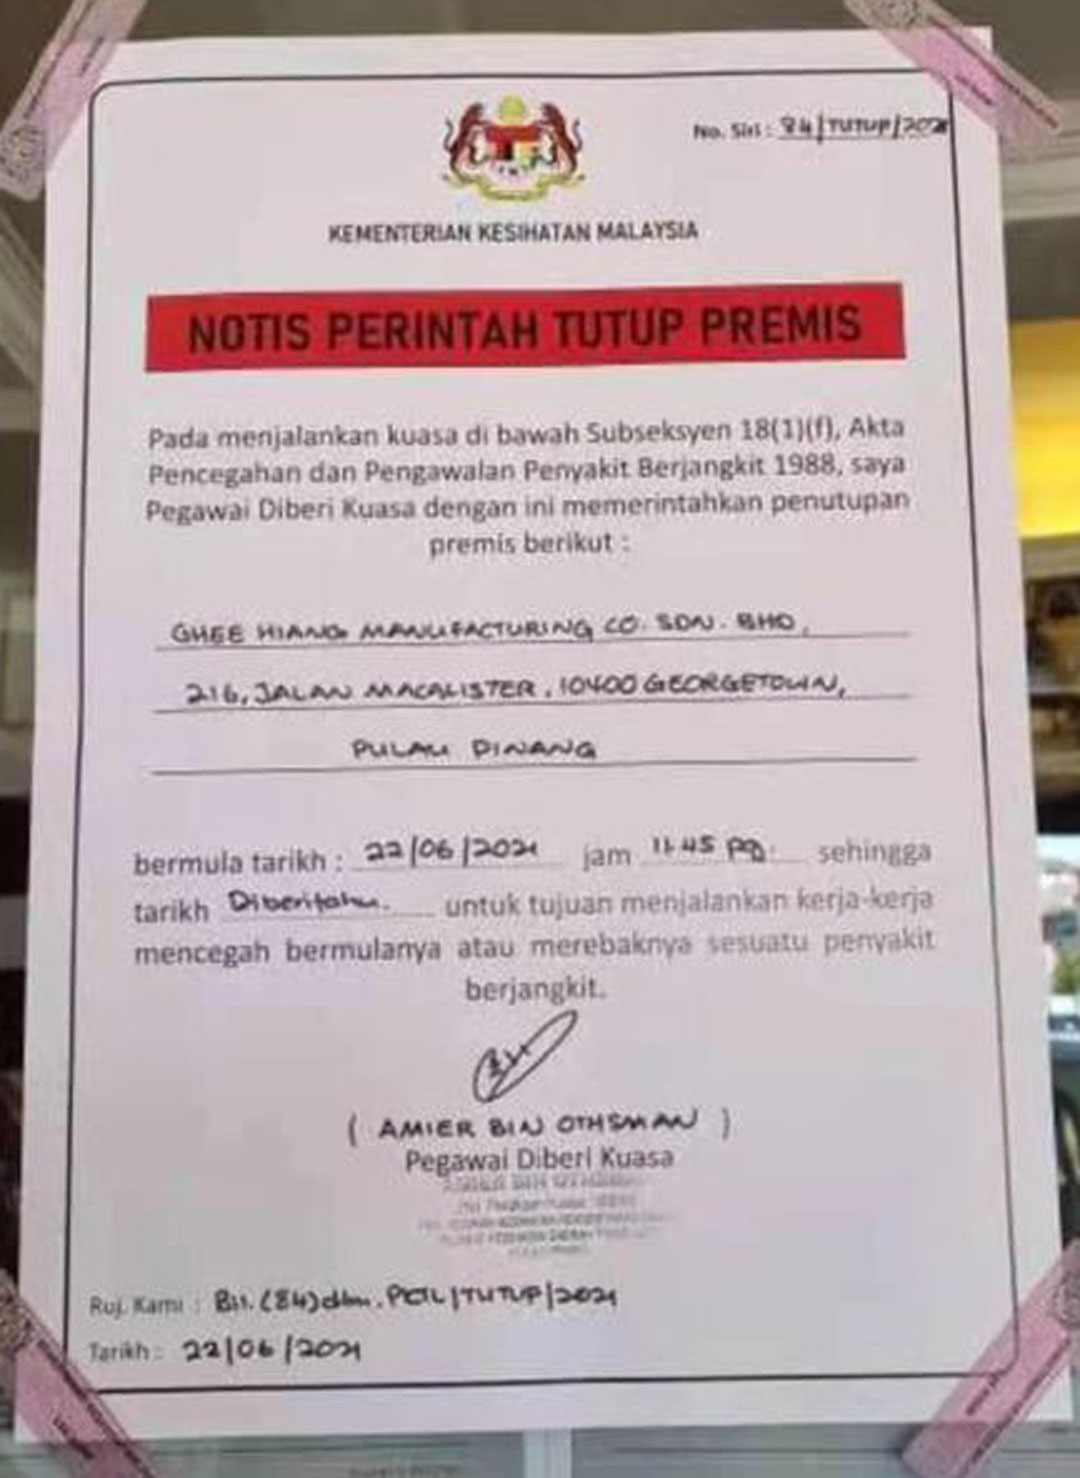 No. Siri : 84/TUTUP/2021
KEMENTERIAN KESIHATAN MALAYSIA
NOTIS PERINTAH TUTUP PREMIS
Pada menjalankan kuasa di bawah Subseksyen 18(1)(f), Akta
Pencegahan dan Pengawalan Penyakit Berjangkit 1988, saya
Pegawai Diberi Kuasa dengan ini memerintahkan penutupan
premis berikut :
GHEE HIANG MANUFACTURING CO. SDN. BHD,
216, JALAN MACALISTER, 10400 GEORGETOWN,
PULAU PINANG
bermula tarikh : 22/06/2021 jam 11.45 pg. sehingga
tarikh Diberitahu. untuk tujuan menjalankan kerja-kerja
mencegah bermulanya atau merebaknya sesuatu penyakit
berjangkit.
( AMIER BIN OTHSMAN )
Pegawai Diberi Kuasa
Ruj. Kami : Bil. (84) dlm. /TUTUP/2021
Tarikh : 22/06/2021